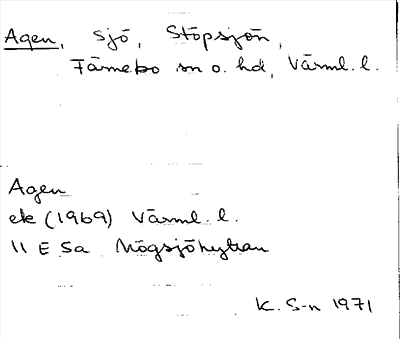 Agen, sjö, Stöpsjön,
Färnebo sn o. hd, Värml. l.
Agen
ek (1969) Värml. l.
11 E Sa Högsjöhyttan
K. S-n 1971